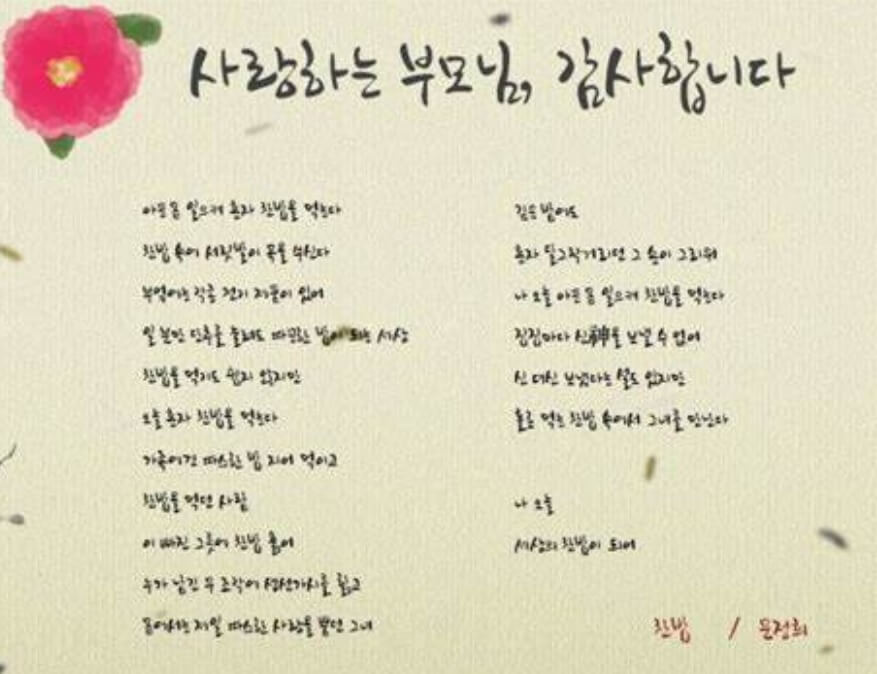 사랑하는 부모님, 감사합니다
아픈 몸 일으켜 혼자 찬밥을 먹는다
찬밥 속에 서릿발이 목을 쑤신다
부엌에는 각종 전기 제품이 있어
일 분만 단추를 눌러도 따끈한 밥이 되는 세상
찬밥을 먹기도 쉽지 않지만
오늘 혼자 찬밥을 먹는다
가족에겐 따스한 밥 지어 먹이고
찬밥을 먹던 사람
이 빠진 그릇에 찬밥 훑어
누가 남긴 무 조각에 생선가시를 핥고
몸에서는 제일 따스한 사랑을 뿜던 그녀
깊은 밤에도
혼자 달그락거리던 그 손이 그리워
나 오늘 아픈 몸 일으켜 찬밥을 먹는다
집집마다 신神을 보낼 수 없어
신 대신 보냈다는 설도 있지만
홀로 먹는 찬밥 속에서 그녀를 만난다
나 오늘
세상의 찬밥이 되어
찬밥 / 문정희